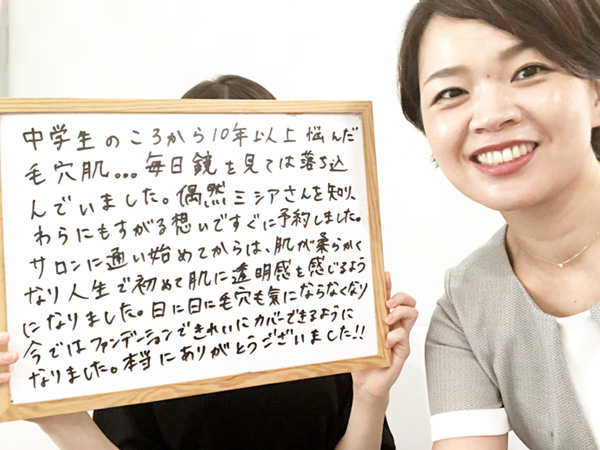 中学生のころから10年以上悩んだ
毛穴肌...毎日鏡を見ては落ち込
んでいました。偶然ミシアさんを知り、
わらにもすがる想いですぐに予約しました。
サロンに通い始めてからは、肌が柔らかく
なり人生で初めて肌に透明感を感じるよう
になりました。日に日に毛穴も気にならなくなり
今ではファンデーションできれいにカバーできるように
なりました。本当にありがとうございました!!